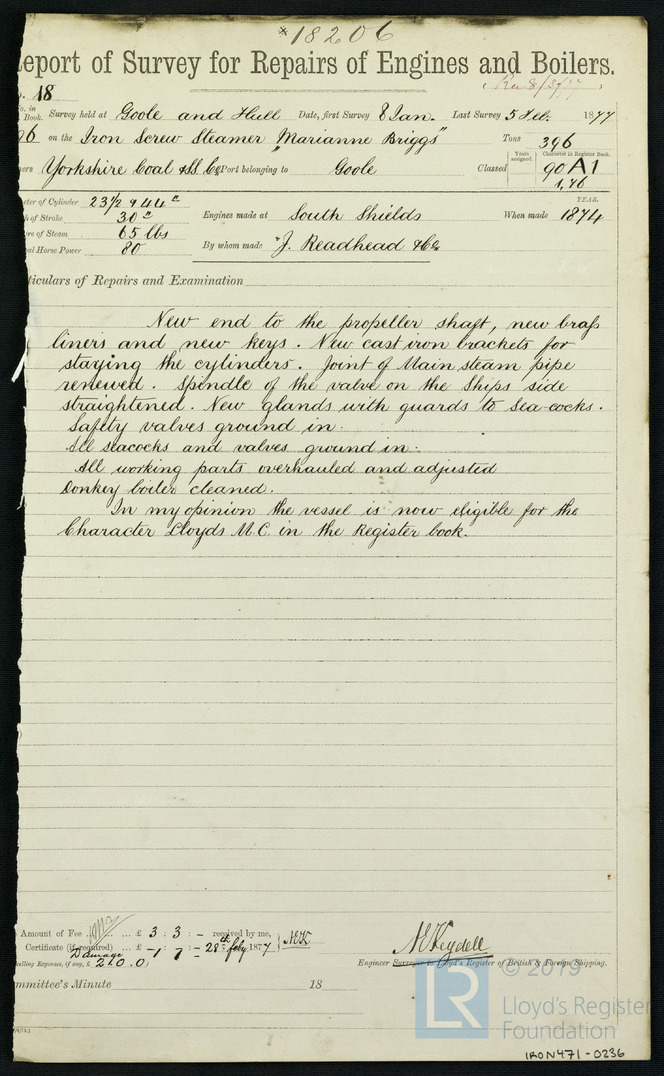 *18206
eport of Survey for Repairs of Engines and Boilers.
18
Rec 8/3/77
o. in Book. Survey held at Goole and Hull Date, first Survey 8 Jan. Last Survey 5 Feb. 1877
96 on the Iron Screw Steamer "Marianne Briggs" Tons 396
ers Yorkshire Coal & SS. Co. Port belonging to Goole Classed Years assigned. Character in Register Book. 90 A1
1,76
eter of Cylinder 23 1/2 & 44"
h of Stroke 30" Engines made at South Shields When made YEAR. 1874
re of Steam 65 lbs
al Horse Power 80 By whom made "J. Readhead & Co.
ticulars of Repairs and Examination
New end to the propeller shaft, new brass
liners and new keys. New cast iron brackets for
staying the cylinders. Joint of Main steam pipe
renewed. Spindle of the valve on the Ships side
straightened. New glands with guards to Sea-cocks.
Safety valves ground in.
All seacocks and valves ground in.
All working parts overhauled and adjusted
Donkey boiler cleaned.
In my opinion the vessel is now eligible for the
Character Lloyds M.C. in the Register book.
Amount of Fee ... £ 3 : 3 : - received by me,
Certificate (if required) ... £ - 1 : 7 : - 28th Feby 1877
Damage
elling Expenses, if any, £ 2.0.0)
Engineer Surveyor to Lloyd's Register of British & Foreign Shipping.
mmittee's Minute 18
© 2019
LR
Lloyd's Register
Foundation
IRON471-0236